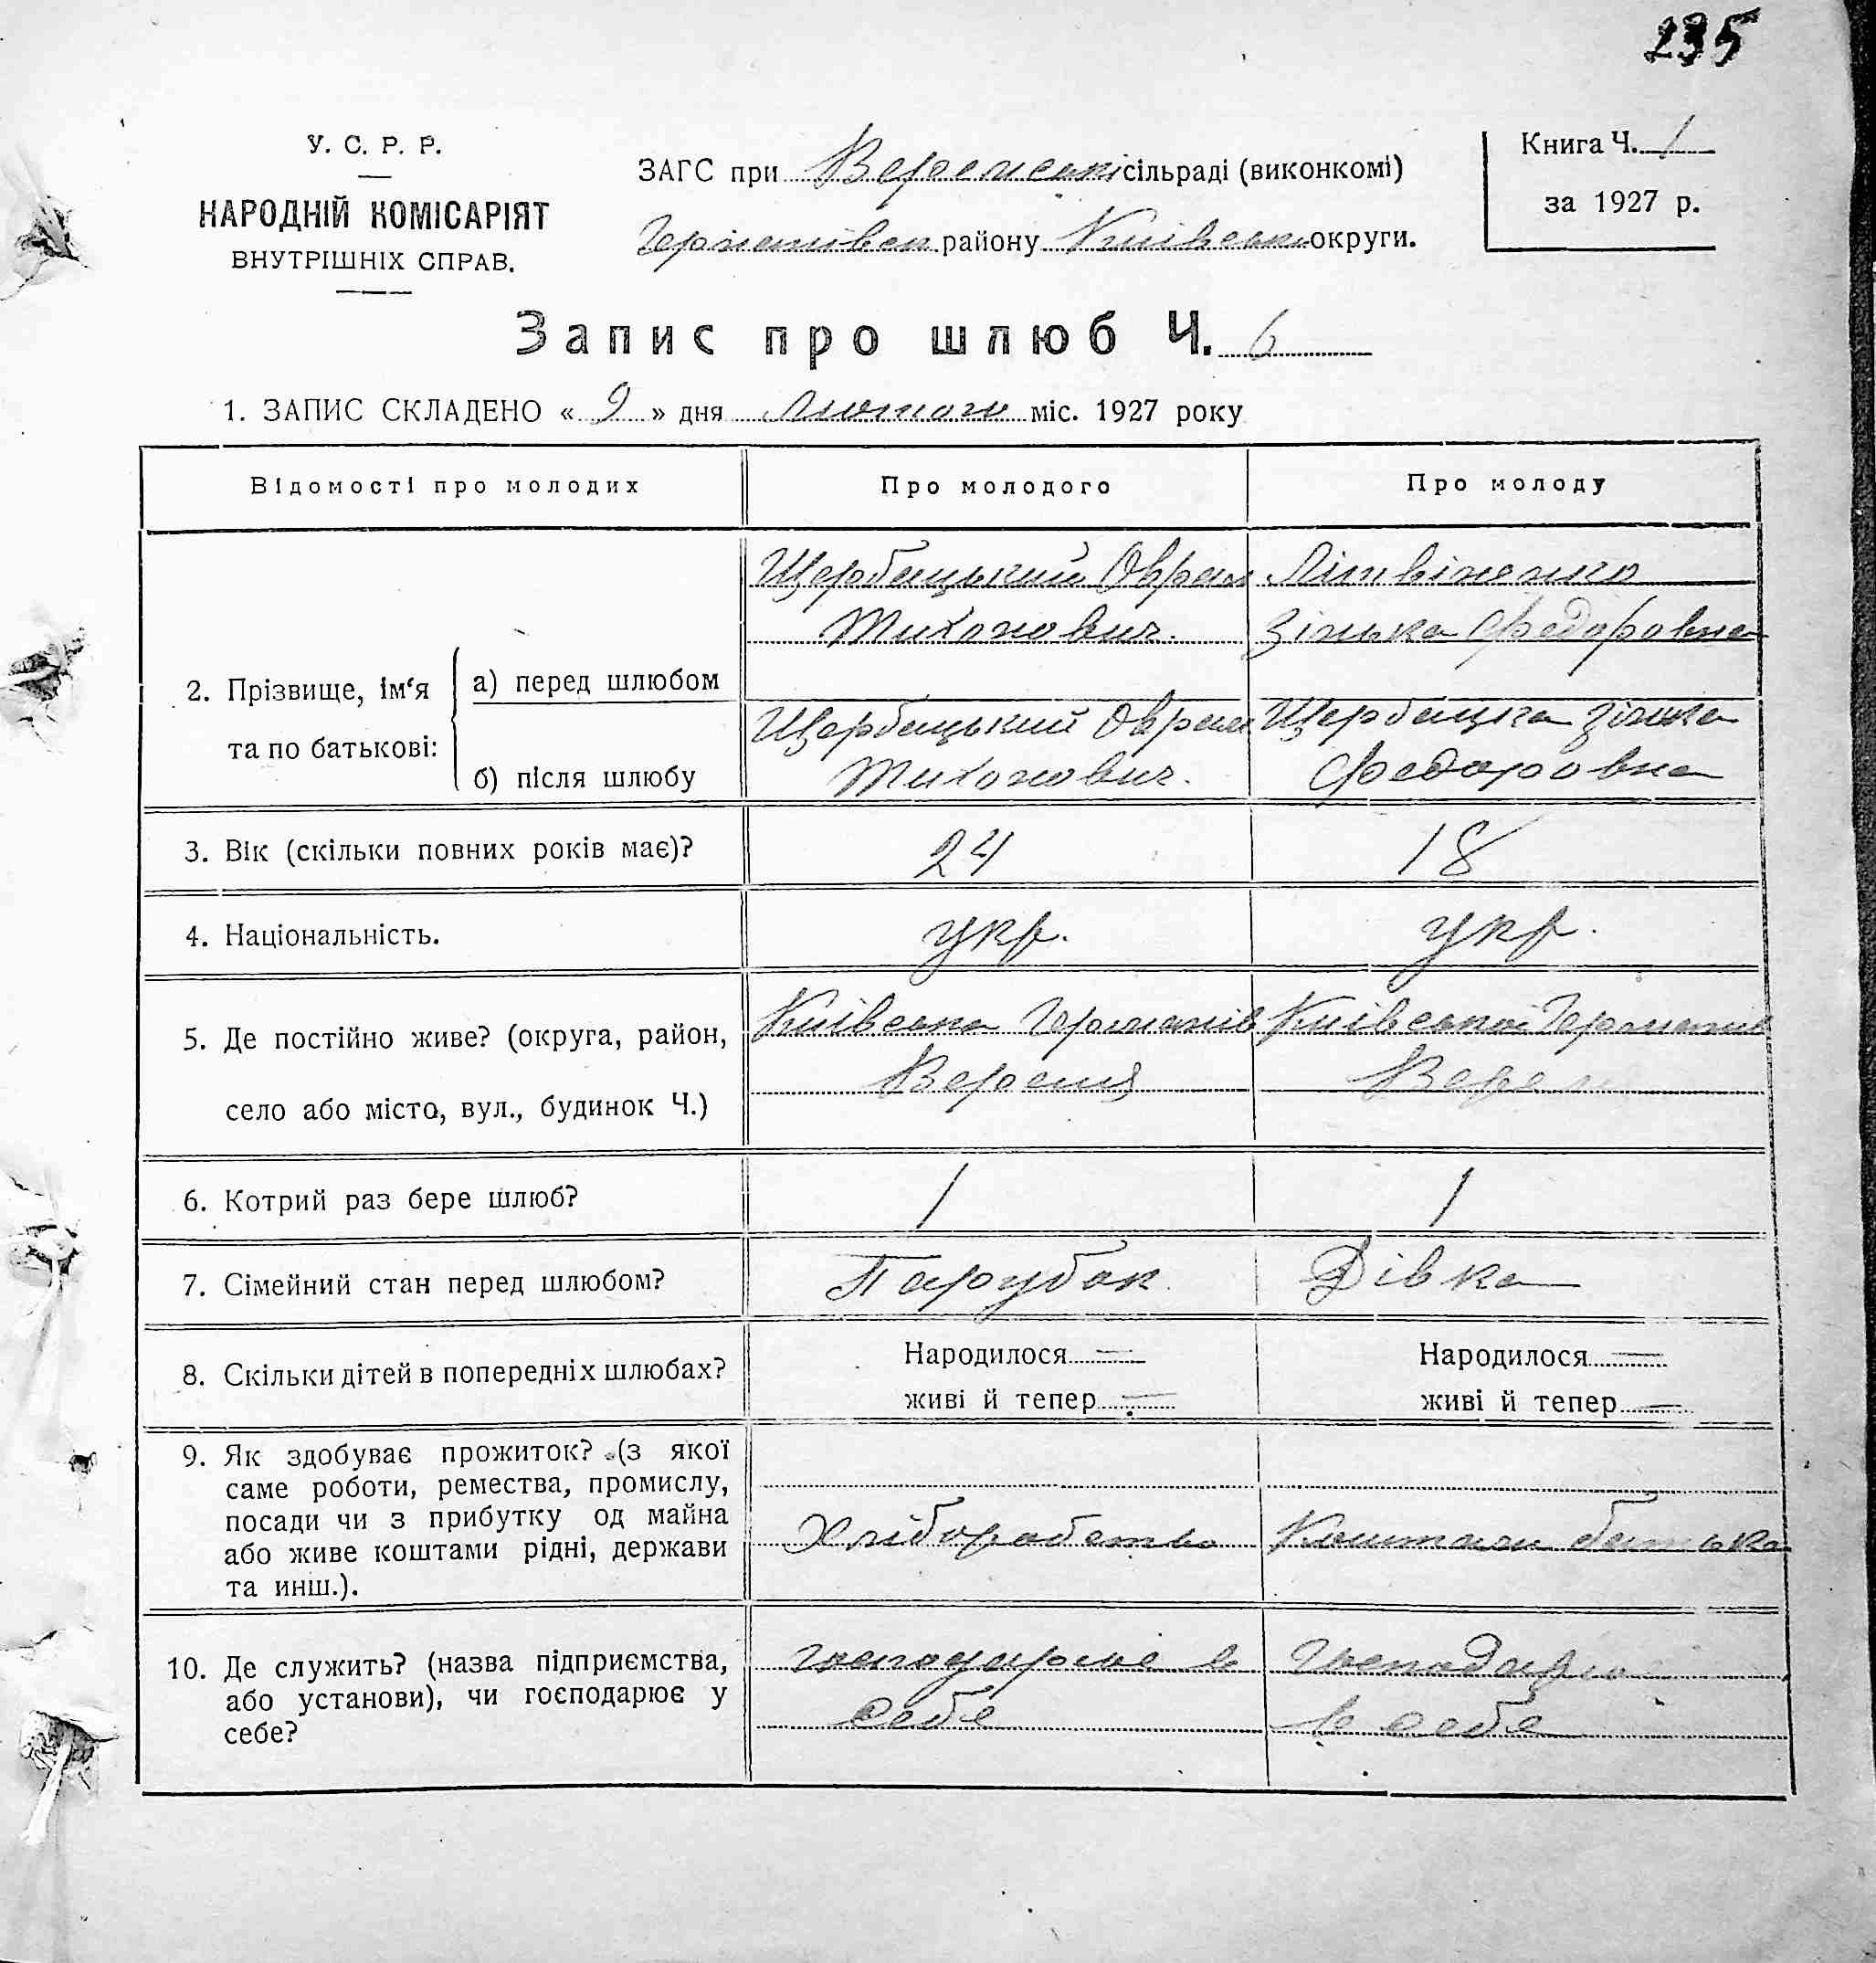 235
У. С. Р. Р.
НАРОДНІЙ КОМІСАРІЯТ
ВНУТРІШНІХ СПРАВ.
ЗАГС при Веремській сільраді (виконкомі)
району Київськ округи.
Книга Ч. 1
за 1927 р.
Запис про шлюб Ч. 6
1. ЗАПИС СКЛАДЕНО « 9 » дня Лютого міс. 1927 року
Відомості про молодих
Про молодого
Про молоду
2. Прізвище, ім‘я
та по батькові:
а) перед шлюбом
Щербацький Оврам
Тихонович.
Літвіненко
Зінька Федоровна
б) після шлюбу
Щербацький Оврам
Тихонович.
Щербацка Зінька
Федоровна
3. Вік (скільки повних років має)?
24
18
4. Національність.
укр.
укр.
5. Де постійно живе? (округа, район,
село або місто, вул., будинок Ч.)
Київська
Веремя
Київської
Верем
6. Котрий раз бере шлюб?
1
1
7. Сімейний стан перед шлюбом?
Парубок
Дівка
8. Скільки дітей в попередніх шлюбах?
Народилося —
живі й тепер —
Народилося —
живі й тепер —
9. Як здобуває прожиток? (з якої
саме роботи, ремества, промислу,
посади чи з прибутку од майна
або живе коштами рідні, держави
та инш.).
Хліборобство
Коштами батька
10. Де служить? (назва підприємства,
або установи), чи господарює у
себе?
господарює в
себе
Господарює
в себе